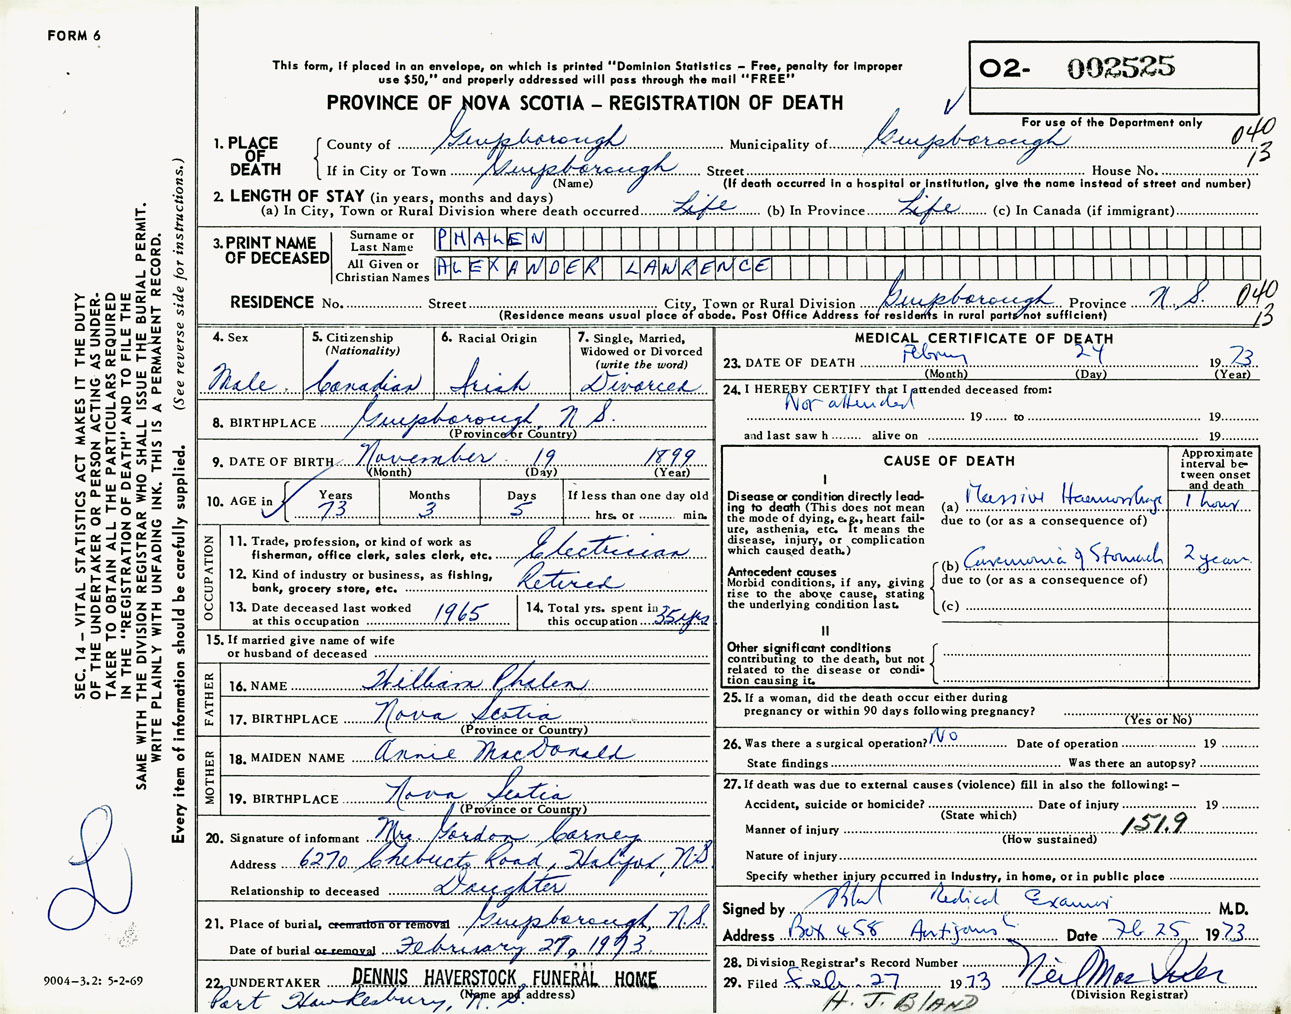 FORM 6
This form, if placed in an envelope, on which is printed "Dominion Statistics – Free, penalty for improper
use $50," and properly addressed will pass through the mail "FREE"
PROVINCE OF NOVA SCOTIA – REGISTRATION OF DEATH
02- 002525
For use of the Department only
1. PLACE OF DEATH
County of Guysborough Municipality of Guysborough 040
If in City or Town Guysborough Street House No. 13
(Name) (If death occurred in a hospital or institution, give the name instead of street and number)
2. LENGTH OF STAY (in years, months and days)
(a) In City, Town or Rural Division where death occurred Life (b) In Province Life (c) In Canada (if immigrant)
3. PRINT NAME OF DECEASED
Surname or Last Name PHALEN
All Given or Christian Names ALEXANDER LAWRENCE
RESIDENCE No. Street City, Town or Rural Division Guysborough Province N.S. 040
(Residence means usual place of abode. Post Office Address for residents in rural parts not sufficient) 13
4. Sex
Male
5. Citizenship
(Nationality)
Canadian
6. Racial Origin
Irish
7. Single, Married,
Widowed or Divorced
(write the word)
Divorced
8. BIRTHPLACE Guysborough, N.S.
(Province or Country)
9. DATE OF BIRTH November 19 1899
(Month) (Day) (Year)
10. AGE in
Years Months Days If less than one day old
73 3 5 hrs. or min.
OCCUPATION
11. Trade, profession, or kind of work as
fisherman, office clerk, sales clerk, etc. Electrician
12. Kind of industry or business, as fishing,
bank, grocery store, etc. Retired
13. Date deceased last worked
at this occupation 1965
14. Total yrs. spent in
this occupation 35 yrs
15. If married give name of wife
or husband of deceased
FATHER
16. NAME William Phalen
17. BIRTHPLACE Nova Scotia
(Province or Country)
MOTHER
18. MAIDEN NAME Annie MacDonald
19. BIRTHPLACE Nova Scotia
(Province or Country)
20. Signature of informant Mrs. Gordon Carney
Address 6270 Chebucto Road, Halifax, N.S.
Relationship to deceased Daughter
21. Place of burial, cremation or removal Guysborough, N.S.
Date of burial or removal February 27, 1973
22. UNDERTAKER DENNIS HAVERSTOCK FUNERAL HOME
(Name and address)
Port Hawkesbury, N.S.
MEDICAL CERTIFICATE OF DEATH
23. DATE OF DEATH February 24 1973
(Month) (Day) (Year)
24. I HEREBY CERTIFY that I attended deceased from:
Not attended
19 to 19
and last saw h alive on 19
CAUSE OF DEATH
Approximate
interval be-
tween onset
and death
I
Disease or condition directly lead-
ing to death (This does not mean
the mode of dying, e.g., heart fail-
ure, asthenia, etc. It means the
disease, injury, or complication
which caused death.)
(a) Massive Haemorrhage 1 hour
due to (or as a consequence of)
Antecedent causes
Morbid conditions, if any, giving
rise to the above cause, stating
the underlying condition last.
(b) Carcinoma of Stomach 2 years
due to (or as a consequence of)
(c)
II
Other significant conditions
contributing to the death, but not
related to the disease or condi-
tion causing it.
25. If a woman, did the death occur either during
pregnancy or within 90 days following pregnancy?
(Yes or No)
26. Was there a surgical operation? No Date of operation 19
State findings Was there an autopsy?
27. If death was due to external causes (violence) fill in also the following: –
Accident, suicide or homicide? Date of injury 19
(State which)
Manner of injury 151.9
(How sustained)
Nature of injury
Specify whether injury occurred in industry, in home, or in public place
Signed by Bland Medical Examiner M.D.
Address Box 458 Antigonish Date Feb 25 1973
28. Division Registrar's Record Number
29. Filed Feb. 27 1973 Neil
(Division Registrar)
H. J. Bland
SEC. 14 – VITAL STATISTICS ACT MAKES IT THE DUTY
OF THE UNDERTAKER OR PERSON ACTING AS UNDER-
TAKER TO OBTAIN ALL THE PARTICULARS REQUIRED
IN THE "REGISTRATION OF DEATH" AND TO FILE THE
SAME WITH THE DIVISION REGISTRAR WHO SHALL ISSUE THE BURIAL PERMIT.
WRITE PLAINLY WITH UNFADING INK. THIS IS A PERMANENT RECORD.
Every item of information should be carefully supplied. (See reverse side for instructions.)
9004-3.2: 5-2-69